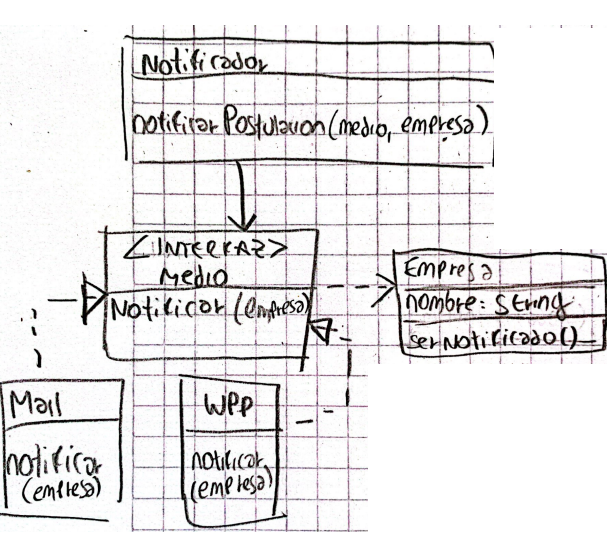 Notificador
notificar Postulacion (medio, empresa)
<INTERFAZ>
Medio
Notificar (empresa)
Empresa
nombre: String
serNotificado()
Mail
notificar
(empresa)
WPP
notificar
(empresa)